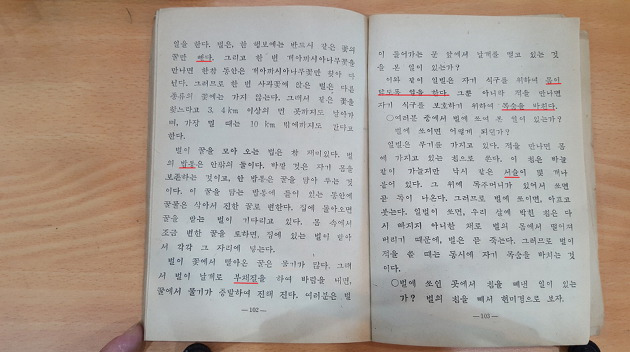 일을 한다. 벌은, 한 행보에는 반드시 같은 꽃의
꿀만 딴다. 그리고 한 번 가아까시아나무꽃을
만나면 한참 동안은 가아까시아나무꽃만 찾아 다
닌다. 그러므로 한 번 사꽈꽃에 앉은 벌은 다른
종류의 꽃에는 가지 않는다. 그래서 벌은 꽃을
찾느라고 3, 4 km 이상의 먼 곳까지도 날아가
며, 가장 멀 때는 10 km 밖에까지도 간다고
한다.
벌이 꿀을 모아 오는 법은 참 재미있다. 벌
의 밥통은 안팎의 둘이다. 바깥 것은 자기 몸을
보존하는 것이고, 한 밥통은 꿀을 담아 두는 것
이다. 이 꿀을 담는 밥통에 들어 있는 동안에
꽃물은 삭아서 진한 꿀로 변한다. 집에 돌아오면
꿀을 받는 벌이 기다리고 있다. 몸 속에서
조금 변한 꿀을 토하면, 집에 있는 벌이 받아
서 각각 그 자리에 넣는다.
벌이 꽃에서 빨아온 꿀은 물기가 많다. 그래
서 벌이 날개로 부채질을 하여 바람을 내면,
꿀에서 물기가 증발하여 진해 진다. 여러분은 벌
— 102 —
이 들어가는 문 앞에서 날개를 떨고 있는 것
을 본 일이 있는가?
이와 같이 일벌은 자기 식구를 위하여 몸이
닳도록 일을 한다. 그뿐 아니라 적을 만나면
자기 식구를 보호하기 위하여 목숨을 바친다.
○여러분 중에서 벌에 쏘여 본 일이 있는가?
벌에 쏘이면 어떻게 되던가?
일벌은 무기를 가지고 있다. 적을 만나면 몸
에 가지고 있는 침으로 쏜다. 이 침은 바늘
같이 가늘지만 낚시 같은 서슬이 몇 개나
붙어 있다. 그 위에 독주머니가 있어서 쏘면
곧 독이 나온다. 그러므로 벌에 쏘이면, 아프고
붓는다. 일벌이 쏘면, 우리 살에 박힌 침은 다
시 빠지지 아니한 채로 벌의 몸에서 떨어져
버리기 때문에, 벌은 곧 죽는다. 그러므로 벌이
적을 쏠 때는 동시에 자기 목숨을 바치는 것
이다.
○벌에 쏘인 곳에서 침을 빼낸 일이 있는
가? 벌의 침을 빼서 현미경으로 보자.
— 103 —